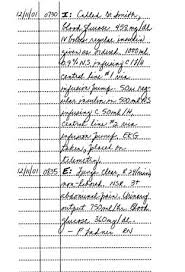 12/11/01 0730 I: Called Dr. Smith,
blood glucose 458 mg/dl.
IV bolus regular insulin
given as ordered. 1000 ml
0.9% N.S. infusing @
central line #1 via
infusion pump. 50u reg-
ular insulin in 500 ml N.S.
infusing @ 50 ml/H,
central line #2 via
infusion pump. EKG
taken, placed on
telemetry.
12/11/01 0835 E: Lungs clear, R 24/min,
non-labored. NSR. 3+
abdominal pain. Urinary
output 750 ml/hr. Blood
glucose 360 mg/dl.
RN